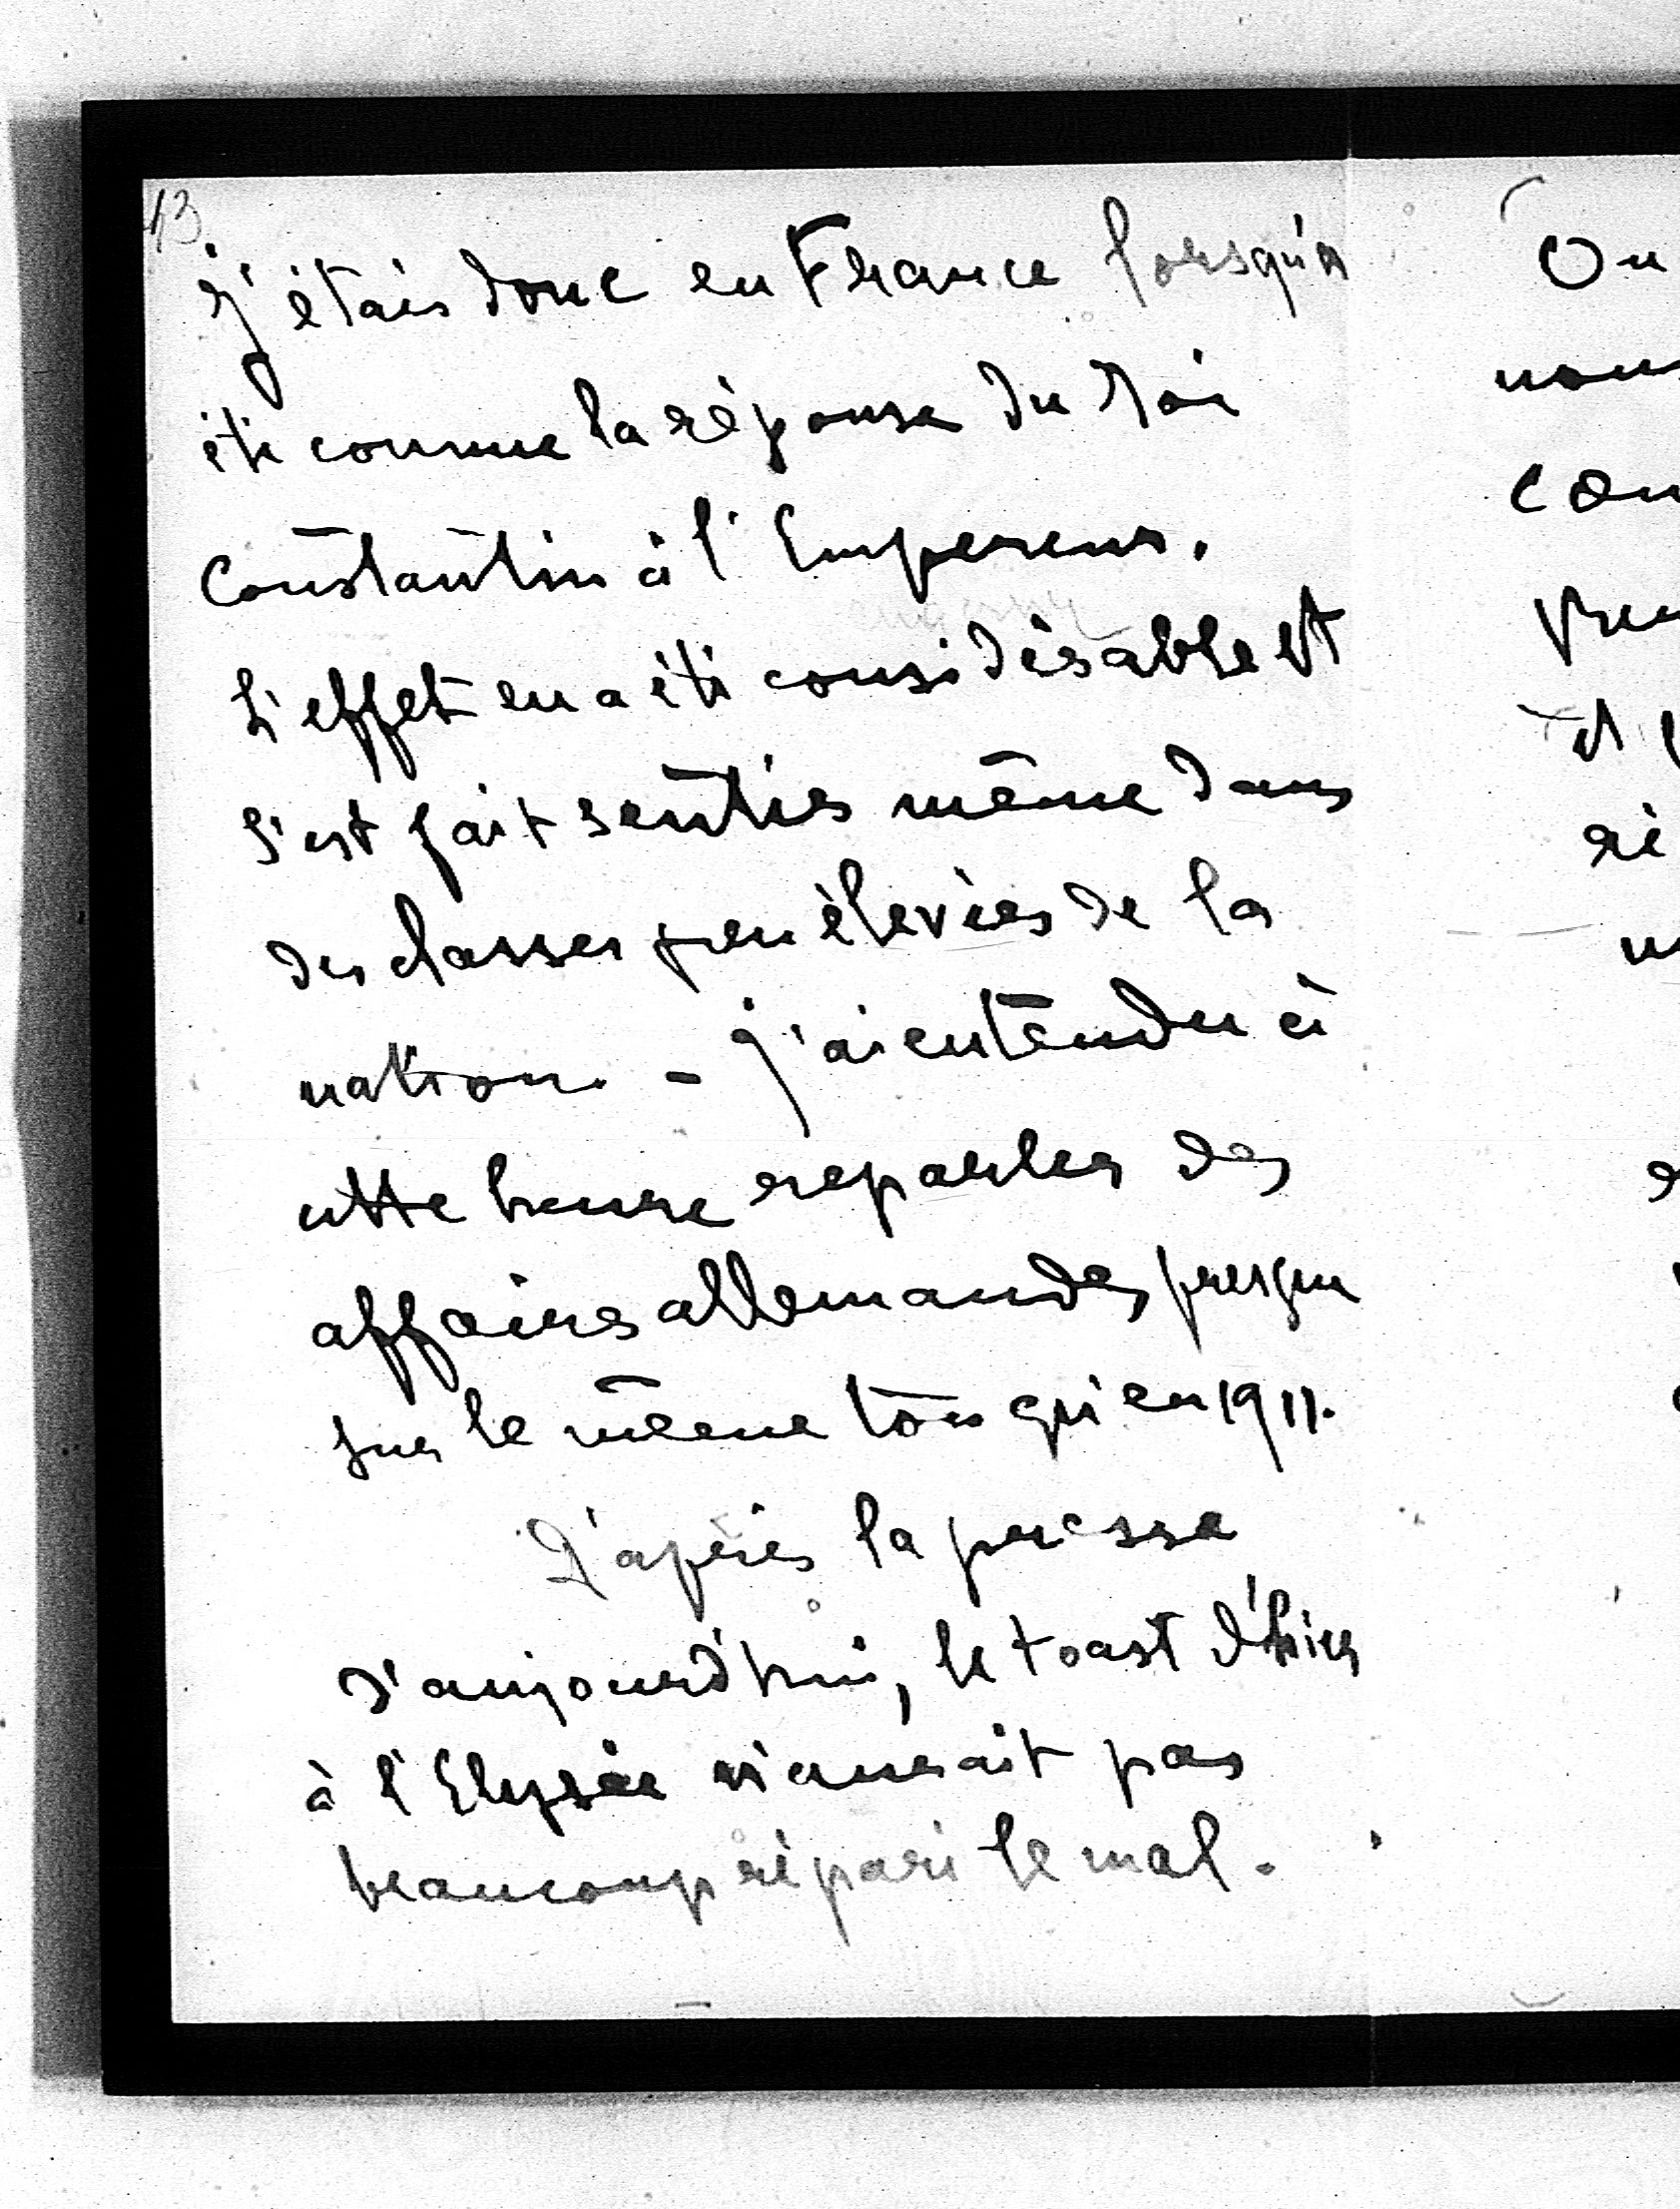 13
j'étais donc en France lorsqu'a
été connue la réponse du Roi
Constantin à l'Empereur.
L'effet en a été considérable et
s'est fait sentir même dans
des classes peu élevées de la
nation. - J'ai entendu à
cette heure reparler des
affaires allemandes presque
sur le même ton qu'en 1911.
D'après la presse
d'aujourd'hui, le toast d'hier
à l'Elysée n'aurait pas
beaucoup réparé le mal.
On